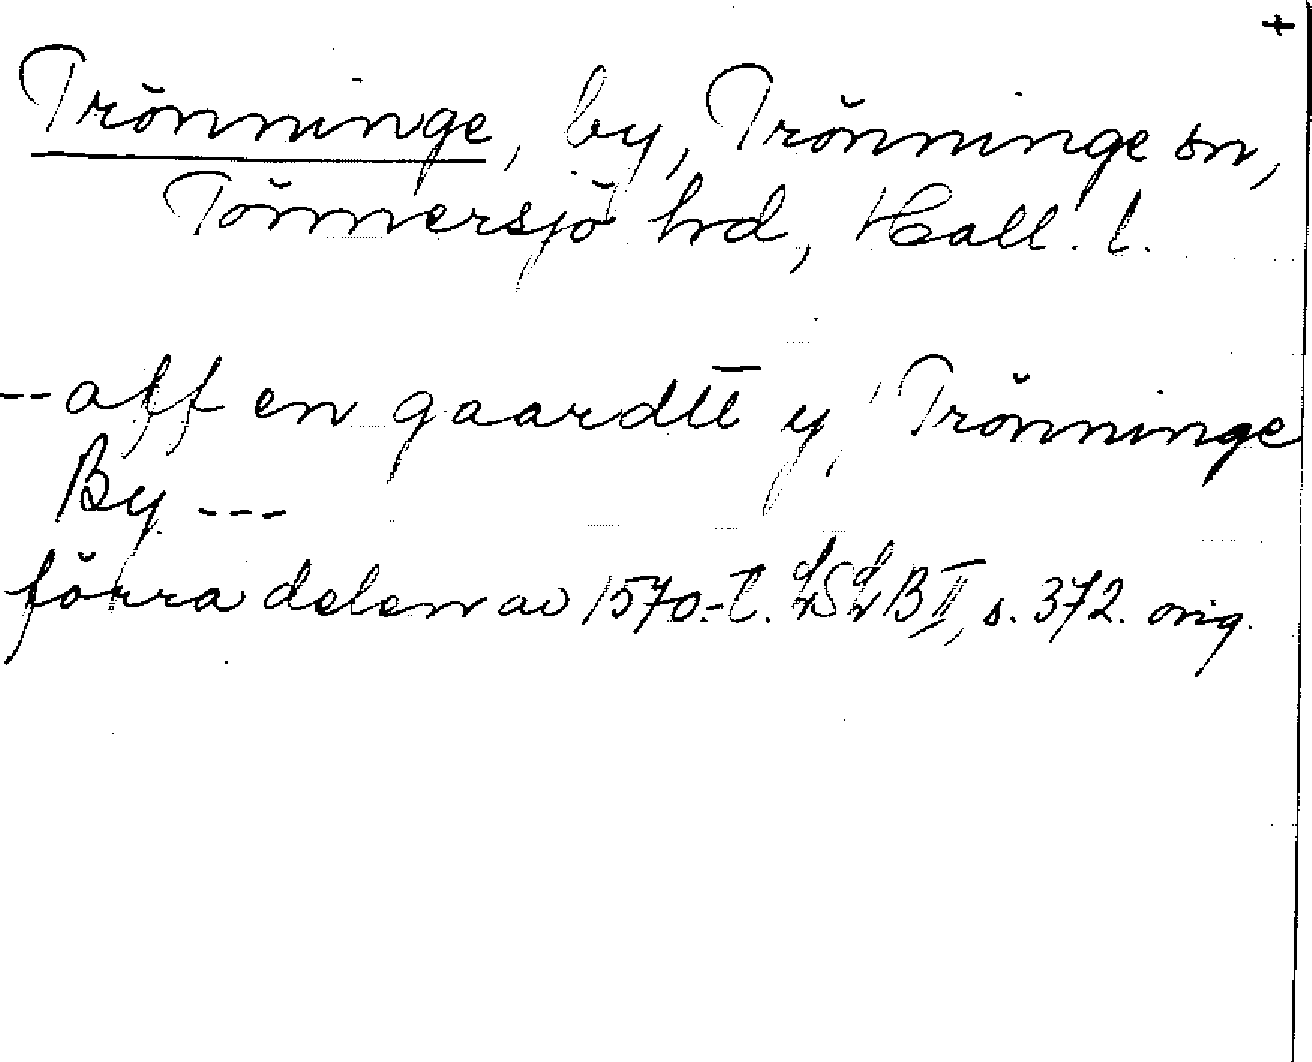 +
Trönninge, by, Trönninge sn,
Tönnersjö hrd, Hall. l.
-- aff en gaardtt y Trönninge
By ---
förra delen av 1570-t. LSLB II, s. 372. orig.